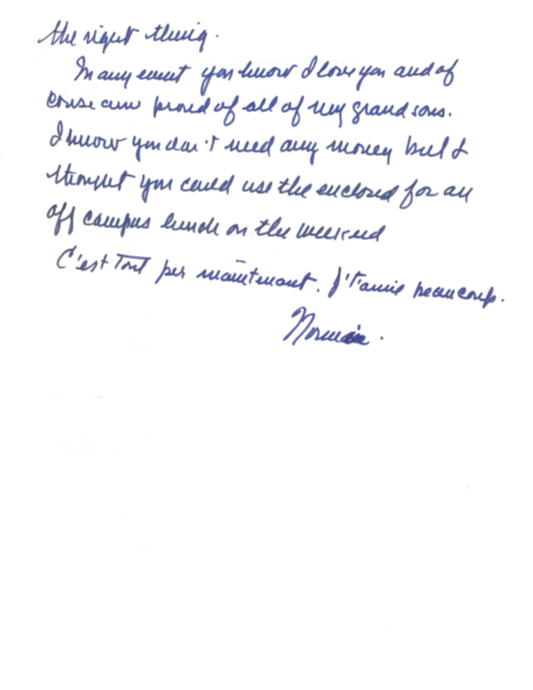 the right thing.
In any event you know I love you and of
course am proud of all of my grandsons.
I know you don't need any money but I
thought you could use the enclosed for an
off campus lunch on the weekend
C'est Tout per maintenant. J't'aime beaucoup.